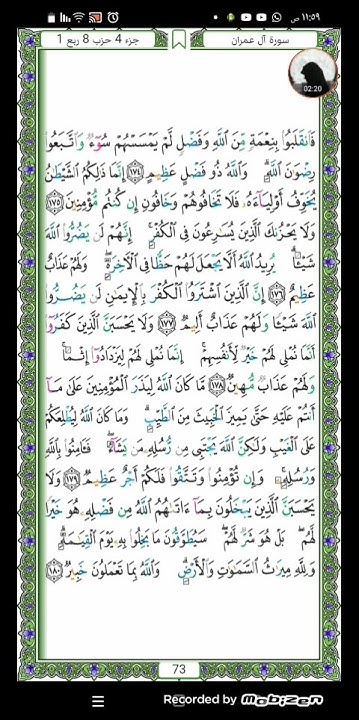 ١١:٥٩ ص
سورة آل عمران
جزء 4 حزب 8 ربع 1
02:20
فَٱنقَلَبُوا۟ بِنِعْمَةٍ مِّنَ ٱللَّهِ وَفَضْلٍ لَّمْ يَمْسَسْهُمْ سُوٓءٌ وَٱتَّبَعُوا۟
رِضْوَٰنَ ٱللَّهِ ۗ وَٱللَّهُ ذُو فَضْلٍ عَظِيمٍ ١٧٤ إِنَّمَا ذَٰلِكُمُ ٱلشَّيْطَٰنُ
يُخَوِّفُ أَوْلِيَآءَهُۥ فَلَا تَخَافُوهُمْ وَخَافُونِ إِن كُنتُم مُّؤْمِنِينَ ١٧٥
وَلَا يَحْزُنكَ ٱلَّذِينَ يُسَٰرِعُونَ فِى ٱلْكُفْرِ ۚ إِنَّهُمْ لَن يَضُرُّوا۟ ٱللَّهَ
شَيْـًٔا ۗ يُرِيدُ ٱللَّهُ أَلَّا يَجْعَلَ لَهُمْ حَظًّا فِى ٱلْـَٔاخِرَةِ ۖ وَلَهُمْ عَذَابٌ
عَظِيمٌ ١٧٦ إِنَّ ٱلَّذِينَ ٱشْتَرَوُا۟ ٱلْكُفْرَ بِٱلْإِيمَٰنِ لَن يَضُرُّوا۟
ٱللَّهَ شَيْـًٔا وَلَهُمْ عَذَابٌ أَلِيمٌ ١٧٧ وَلَا يَحْسَبَنَّ ٱلَّذِينَ كَفَرُوٓا۟
أَنَّمَا نُمْلِى لَهُمْ خَيْرٌ لِّأَنفُسِهِمْ ۚ إِنَّمَا نُمْلِى لَهُمْ لِيَزْدَادُوٓا۟ إِثْمًا ۚ
وَلَهُمْ عَذَابٌ مُّهِينٌ ١٧٨ مَّا كَانَ ٱللَّهُ لِيَذَرَ ٱلْمُؤْمِنِينَ عَلَىٰ مَآ
أَنتُمْ عَلَيْهِ حَتَّىٰ يَمِيزَ ٱلْخَبِيثَ مِنَ ٱلطَّيِّبِ ۗ وَمَا كَانَ ٱللَّهُ لِيُطْلِعَكُمْ
عَلَى ٱلْغَيْبِ وَلَٰكِنَّ ٱللَّهَ يَجْتَبِى مِن رُّسُلِهِۦ مَن يَشَآءُ ۖ فَـَٔامِنُوا۟ بِٱللَّهِ
وَرُسُلِهِۦ ۚ وَإِن تُؤْمِنُوا۟ وَتَتَّقُوا۟ فَلَكُمْ أَجْرٌ عَظِيمٌ ١٧٩ وَلَا
يَحْسَبَنَّ ٱلَّذِينَ يَبْخَلُونَ بِمَآ ءَاتَىٰهُمُ ٱللَّهُ مِن فَضْلِهِۦ هُوَ خَيْرًا
لَّهُم ۖ بَلْ هُوَ شَرٌّ لَّهُمْ ۖ سَيُطَوَّقُونَ مَا بَخِلُوا۟ بِهِۦ يَوْمَ ٱلْقِيَٰمَةِ ۗ
وَلِلَّهِ مِيرَٰثُ ٱلسَّمَٰوَٰتِ وَٱلْأَرْضِ ۗ وَٱللَّهُ بِمَا تَعْمَلُونَ خَبِيرٌ ١٨٠
73
Recorded by Mobizen